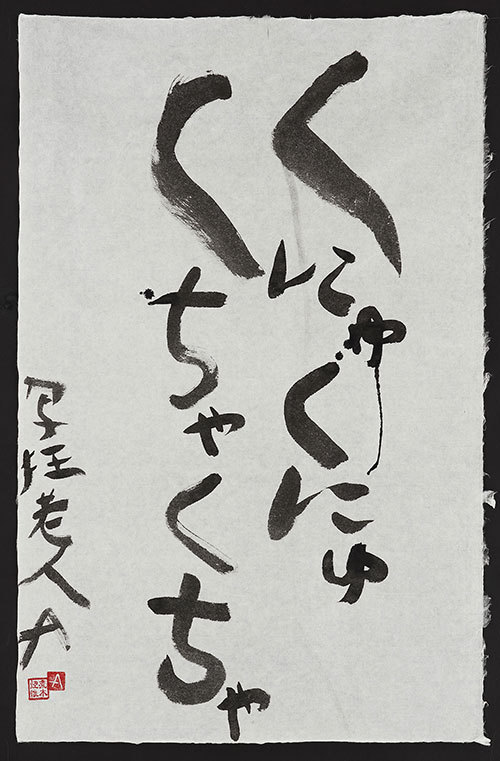 くにゅくにゅ
くちゃくちゃ
写狂老人A
A